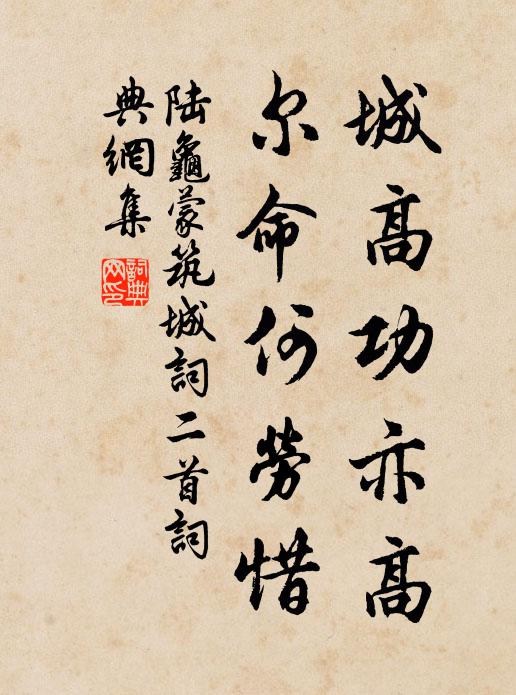 城高功亦高
尔命何劳惜
陆龜蒙筑城詞二首詞
典網集
詞典
网印